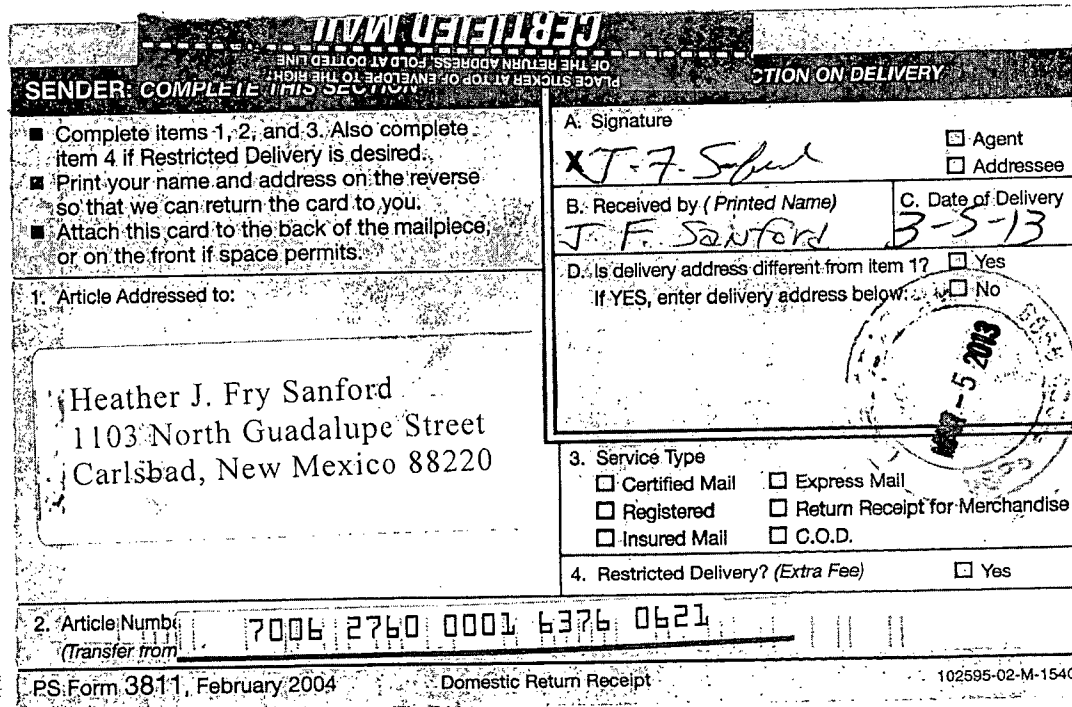 CERTIFIED MAIL
OF THE RETURN ADDRESS, FOLD AT DOTTED LINE
PLACE STICKER AT TOP OF ENVELOPE TO THE RIGHT
SENDER: COMPLETE THIS SECTION
■ Complete items 1, 2, and 3. Also complete
item 4 if Restricted Delivery is desired.
■ Print your name and address on the reverse
so that we can return the card to you.
■ Attach this card to the back of the mailpiece,
or on the front if space permits.
1. Article Addressed to:
Heather J. Fry Sanford
1103 North Guadalupe Street
Carlsbad, New Mexico 88220
CTION ON DELIVERY
A. Signature
X J. F. Sanford
Agent
Addressee
B. Received by (Printed Name)
J. F. Sanford
C. Date of Delivery
3-5-13
D. Is delivery address different from item 1? Yes
If YES, enter delivery address below: No
MAR - 5 2013
3. Service Type
Certified Mail Express Mail
Registered Return Receipt for Merchandise
Insured Mail C.O.D.
4. Restricted Delivery? (Extra Fee) Yes
2. Article Numbe
(Transfer from
7006 2760 0001 6376 0621
PS Form 3811, February 2004 Domestic Return Receipt 102595-02-M-1540